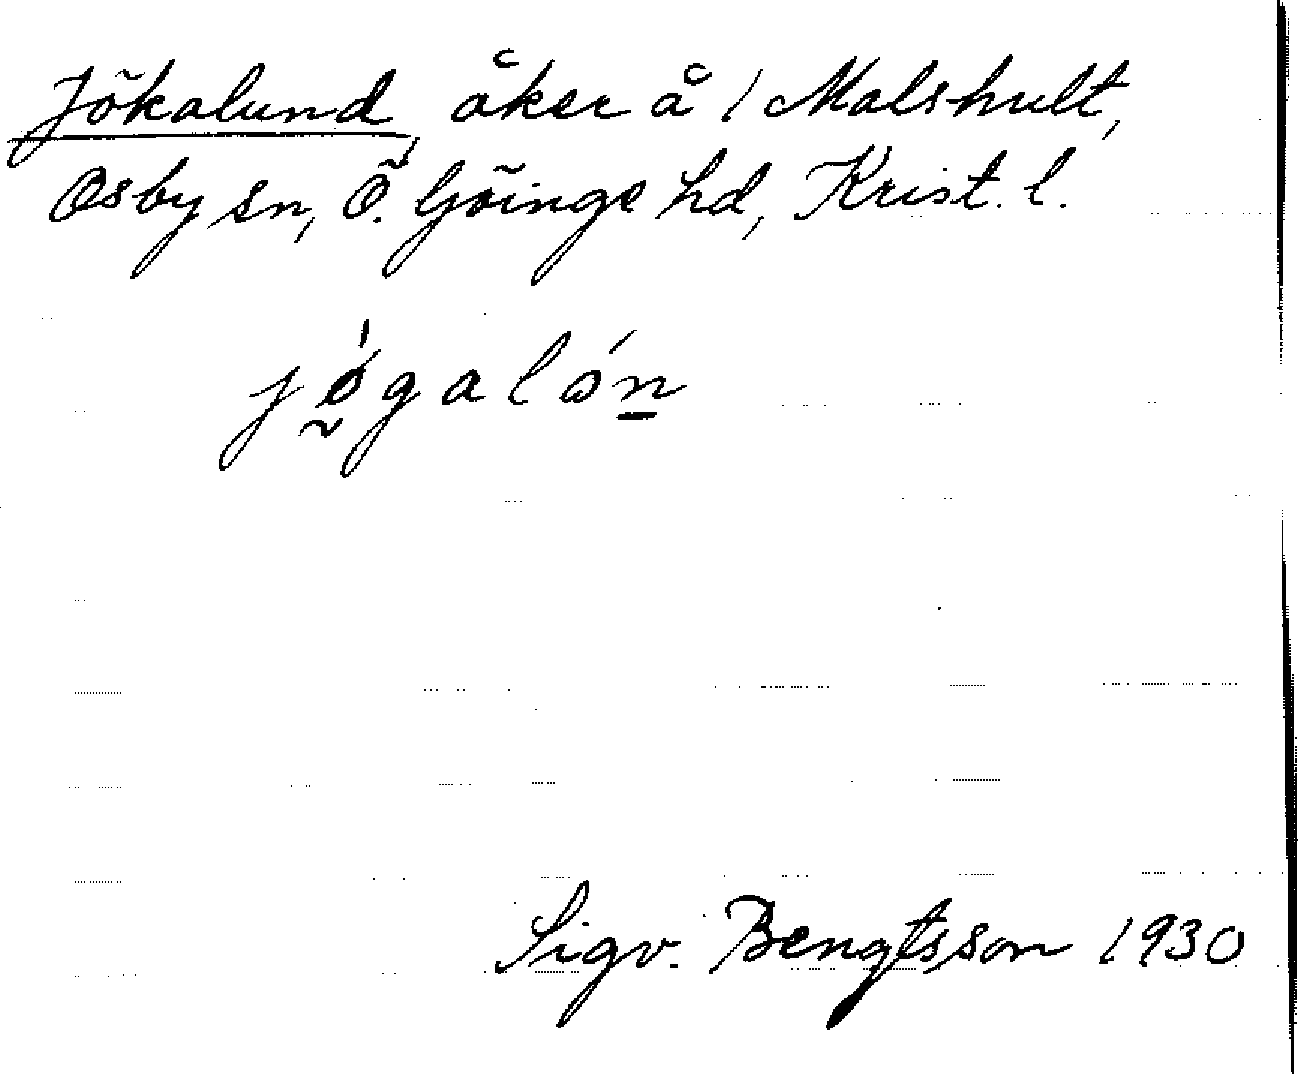 Jökalund, åker å 1 Malshult,
Osby sn, Ö. Göinge hd, Krist. l.
jǿ̰galɷ́n̲
Sigv. Bengtsson 1930